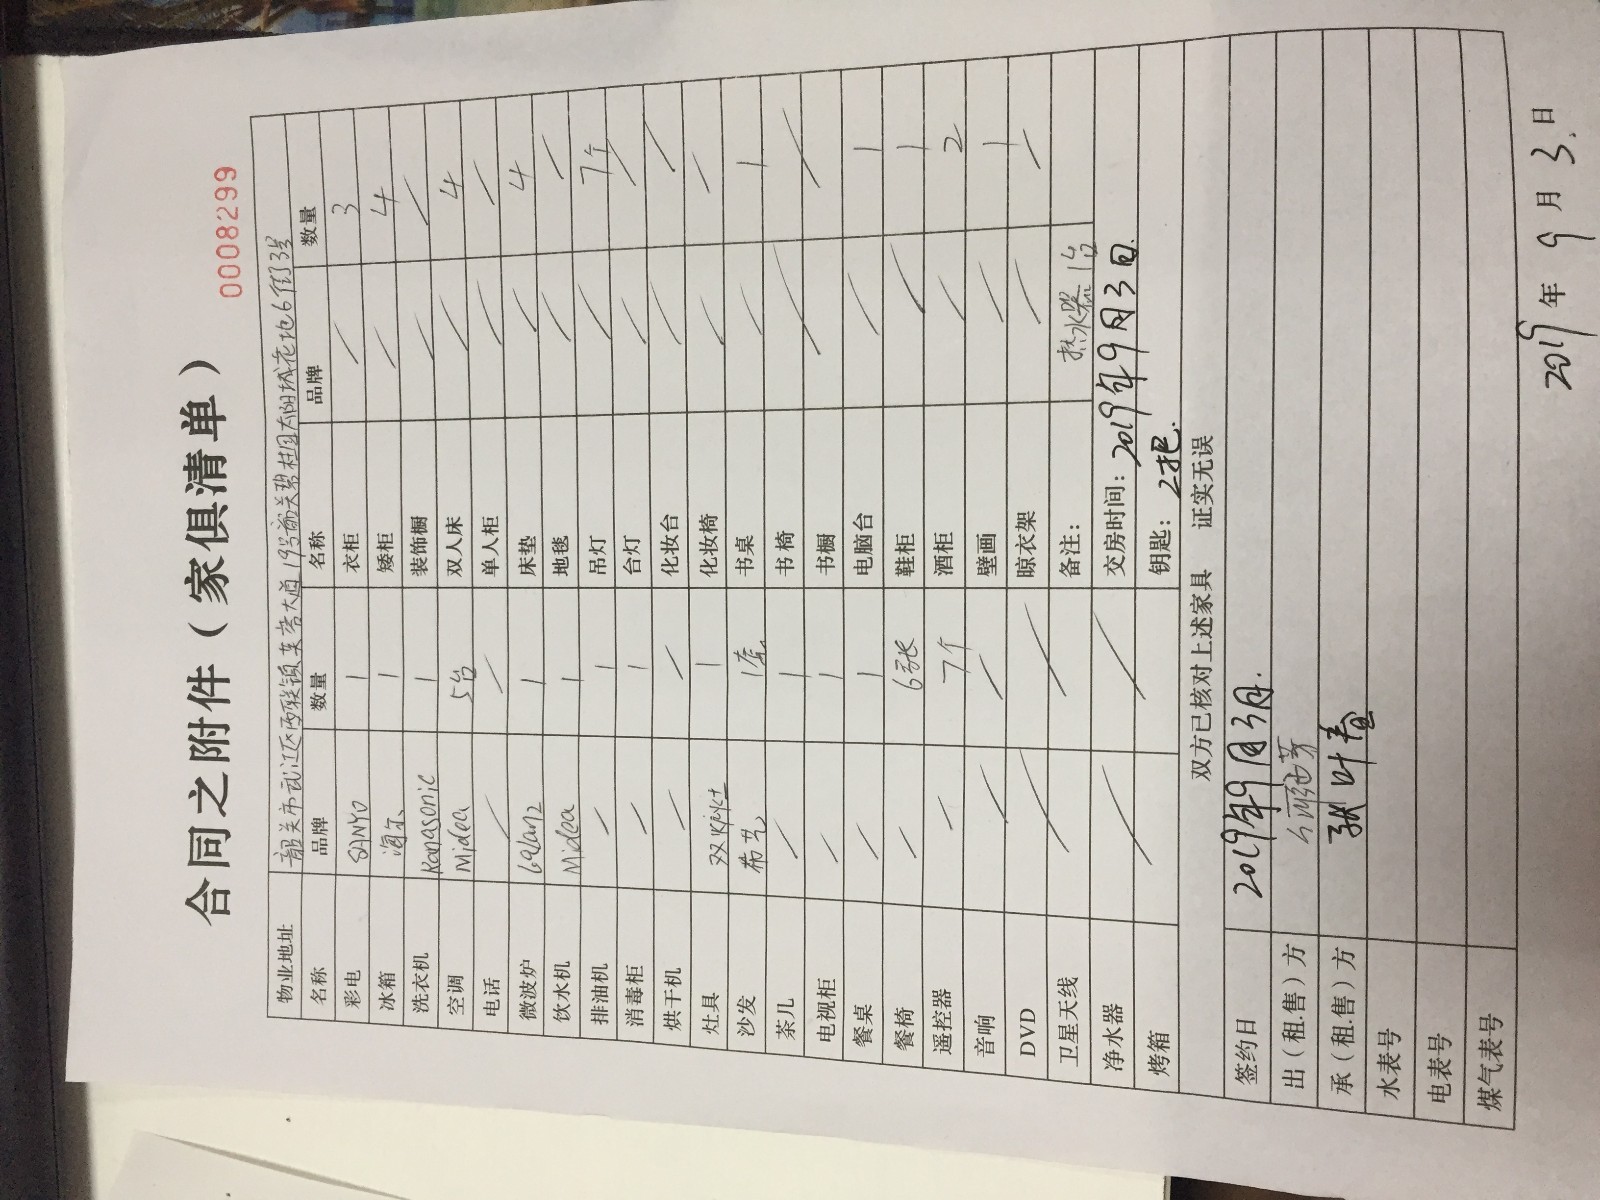 合同之附件（家俱清单）
0008299
物业地址 韶关市武江区西联镇芙蓉大道19号韶关碧桂园太阳城花地6街33号
名称 品牌 数量 名称 品牌 数量
彩电 SANYO 1 衣柜 / 3
冰箱 海尔 1 矮柜 / 4
洗衣机 Kanasonic 1 装饰橱 / /
空调 Midea 5台 双人床 / 4
电话 / / 单人柜 / /
微波炉 Galanz 1 床垫 / 4
饮水机 Midea 1 地毯 / /
排油机 / 1 吊灯 / 7个
消毒柜 / 1 台灯 / /
烘干机 / / 化妆台 / /
灶具 1 化妆椅 / /
沙发 布艺 1套 书桌 / 1
茶几 / 1 书椅 /
电视柜 / 1 书橱
餐桌 / 1 电脑台 / 1
餐椅 / 6张 鞋柜 / 1
遥控器 / 7个 酒柜 / 2
音响 / / 壁画 / 1
DVD / / 晾衣架 / /
卫星天线 备注： 热水器1台
净水器 / / 交房时间：2019年9月3日.
烤箱 钥匙： 2把.
双方已核对上述家具 证实无误
签约日 2019年9月3日.
出（租.售）方
承（租.售）方 张叶春
水表号
电表号
煤气表号
2019年9月3.日